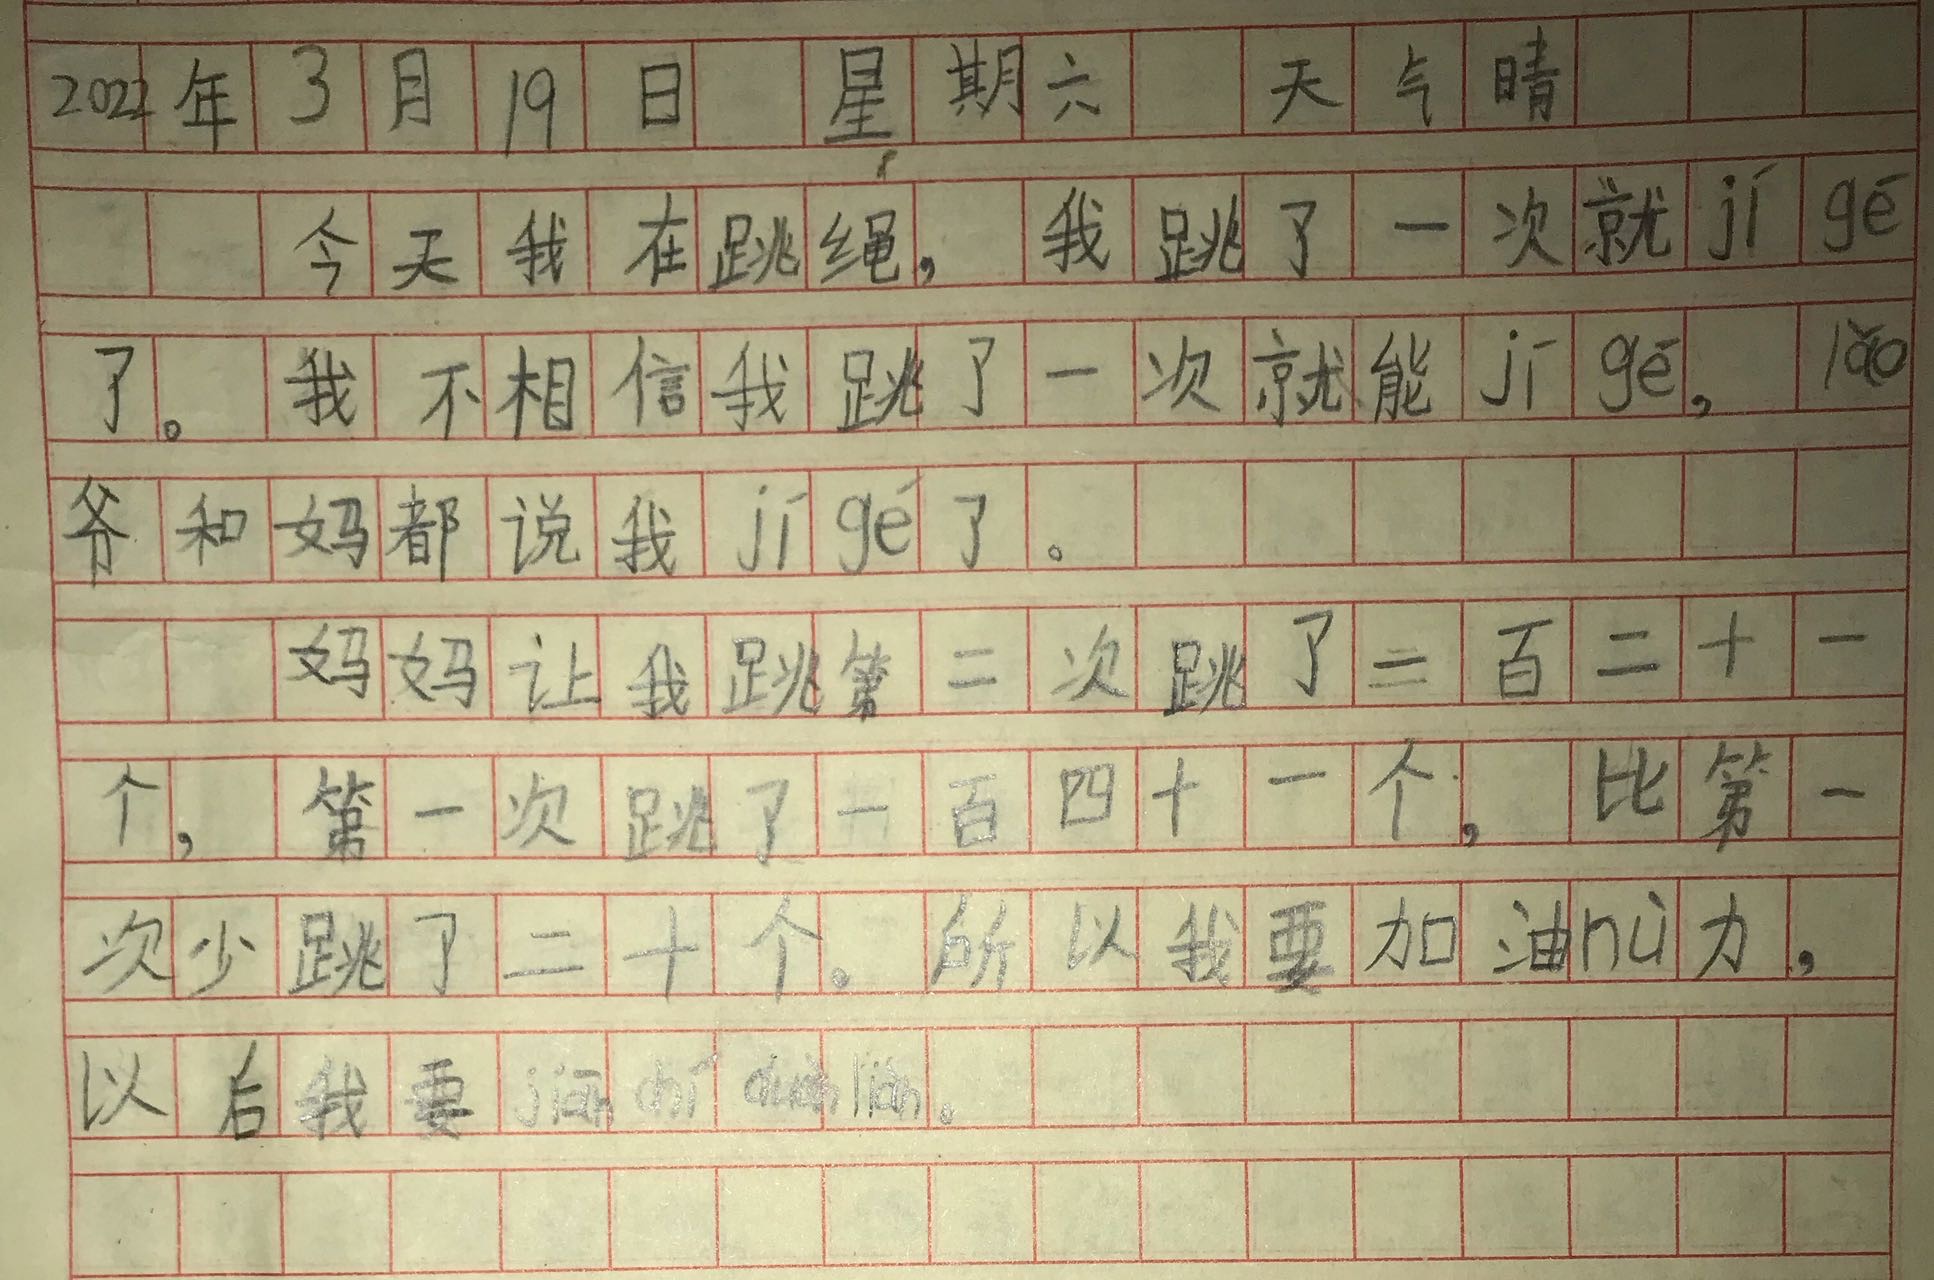 2022年3月19日 星期六 天气晴
今天我在跳绳，我跳了一次就jí gé
了。我不相信我跳了一次就能jí gé，lǎo
爷和妈都说我jí gé了。
妈妈让我跳第二次跳了二百二十一
个，第一次跳了一百四十一个，比第一
次少跳了二十个。所以我要加油nǔ力，
以后我要jiān chí duàn liàn。